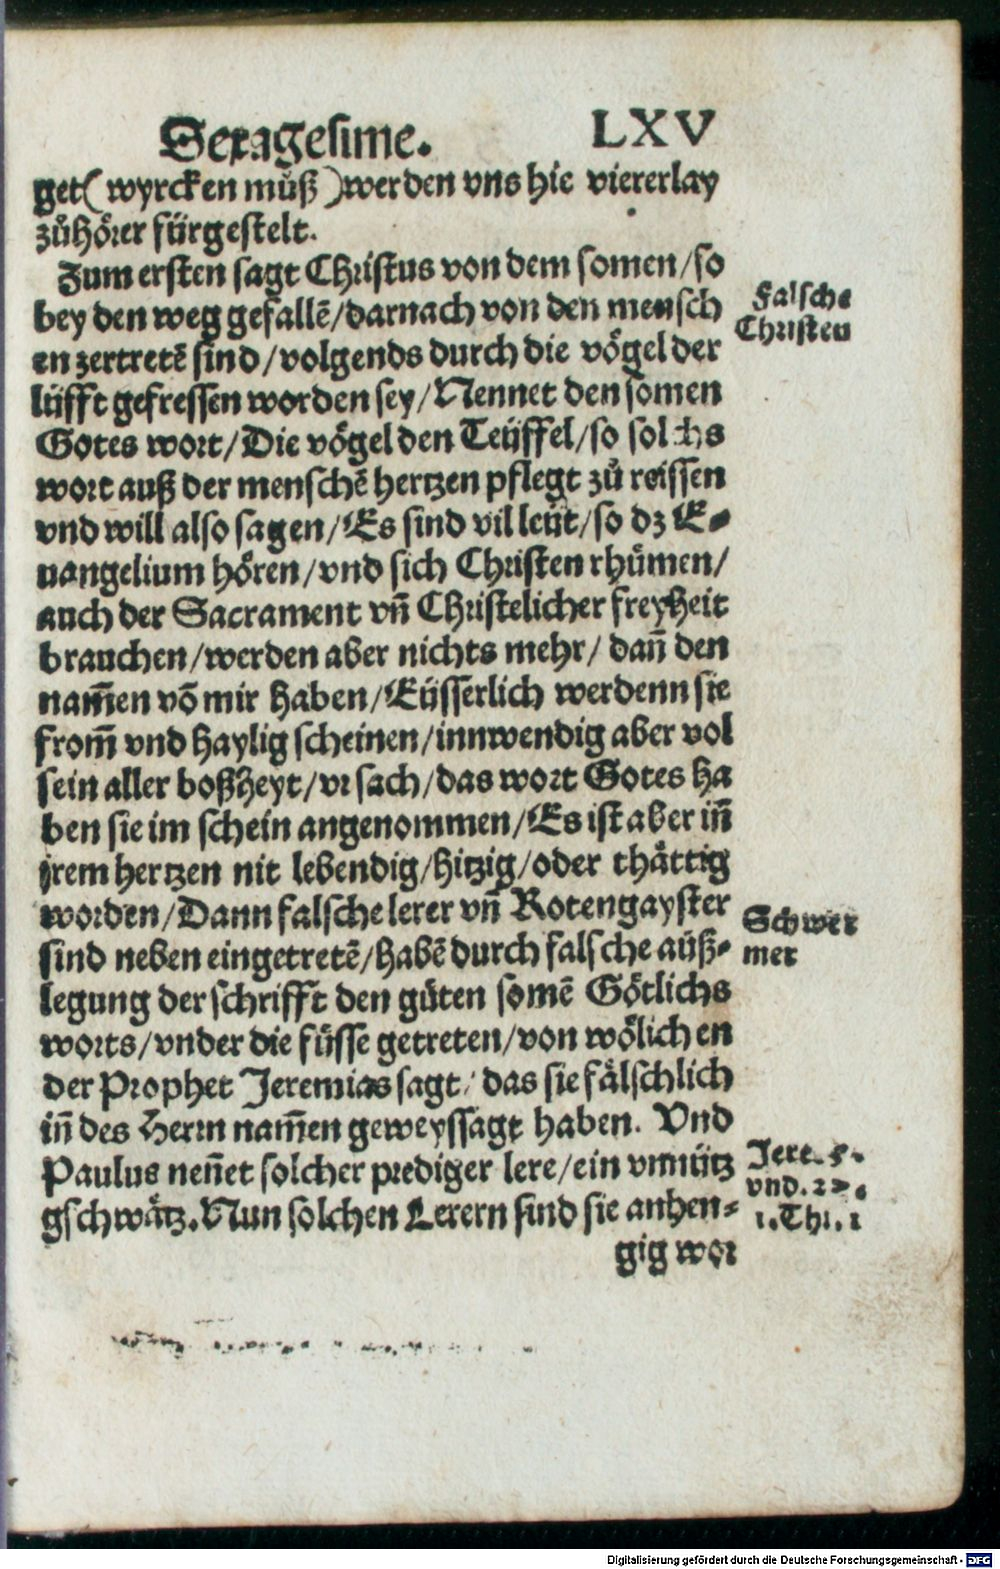 Sexagesime. LXV
get( wyrcken můß )werden vns hie viererlay
zůhörer fürgestelt.
Zum ersten sagt Christus von dem somen/so
bey den weg gefallẽ/darnach von den mensch
en zertretẽ sind/volgends durch die vögel der
lüfft gefressen worden sey/Nennet den somen
Gotes wort/Die vögel den Teüffel/so solchs
wort auß der menschẽ hertzen pflegt zů reissen
vnd will also sagen/Es sind vil leüt/so dz E⸗
uangelium hören/vnd sich Christen rhümen/
auch der Sacrament vñ Christelicher freyheit
brauchen/werden aber nichts mehr/ dañ den
nam̃en võ mir haben/Eüsserlich werdenn sie
from̃ vnd haylig scheinen/innwendig aber vol
sein aller boßheyt/vrsach/das wort Gotes ha
ben sie im schein angenommen/Es ist aber iñ
jrem hertzen nit lebendig/hitzig/oder thättig
worden/Dann falsche lerer vñ Rotengayster
sind neben eingetretẽ/habẽ durch falsche auß⸗
legung der schrifft den gůten somẽ Götlichs
worts/vnder die füsse getreten/von wölichen
der Prophet Jeremias sagt/ das sie fälschlich
iñ des Herrn nam̃en geweyssagt haben. Vnd
Paulus neñet solcher prediger lere/ein vnnütz
gschwätz. Nun solchen Lerern sind sie anhen⸗
gig wor
Falsche
Christen
Schwer
mer
Jere. 5.
vnd. 27.
1. Thi. 1
Digitalisierung gefördert durch die Deutsche Forschungsgemeinschaft - DFG